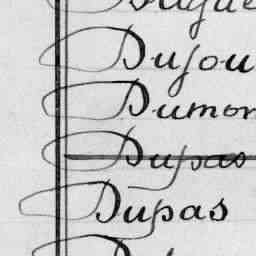 Dujou
Dumon
Dupas
Dupas